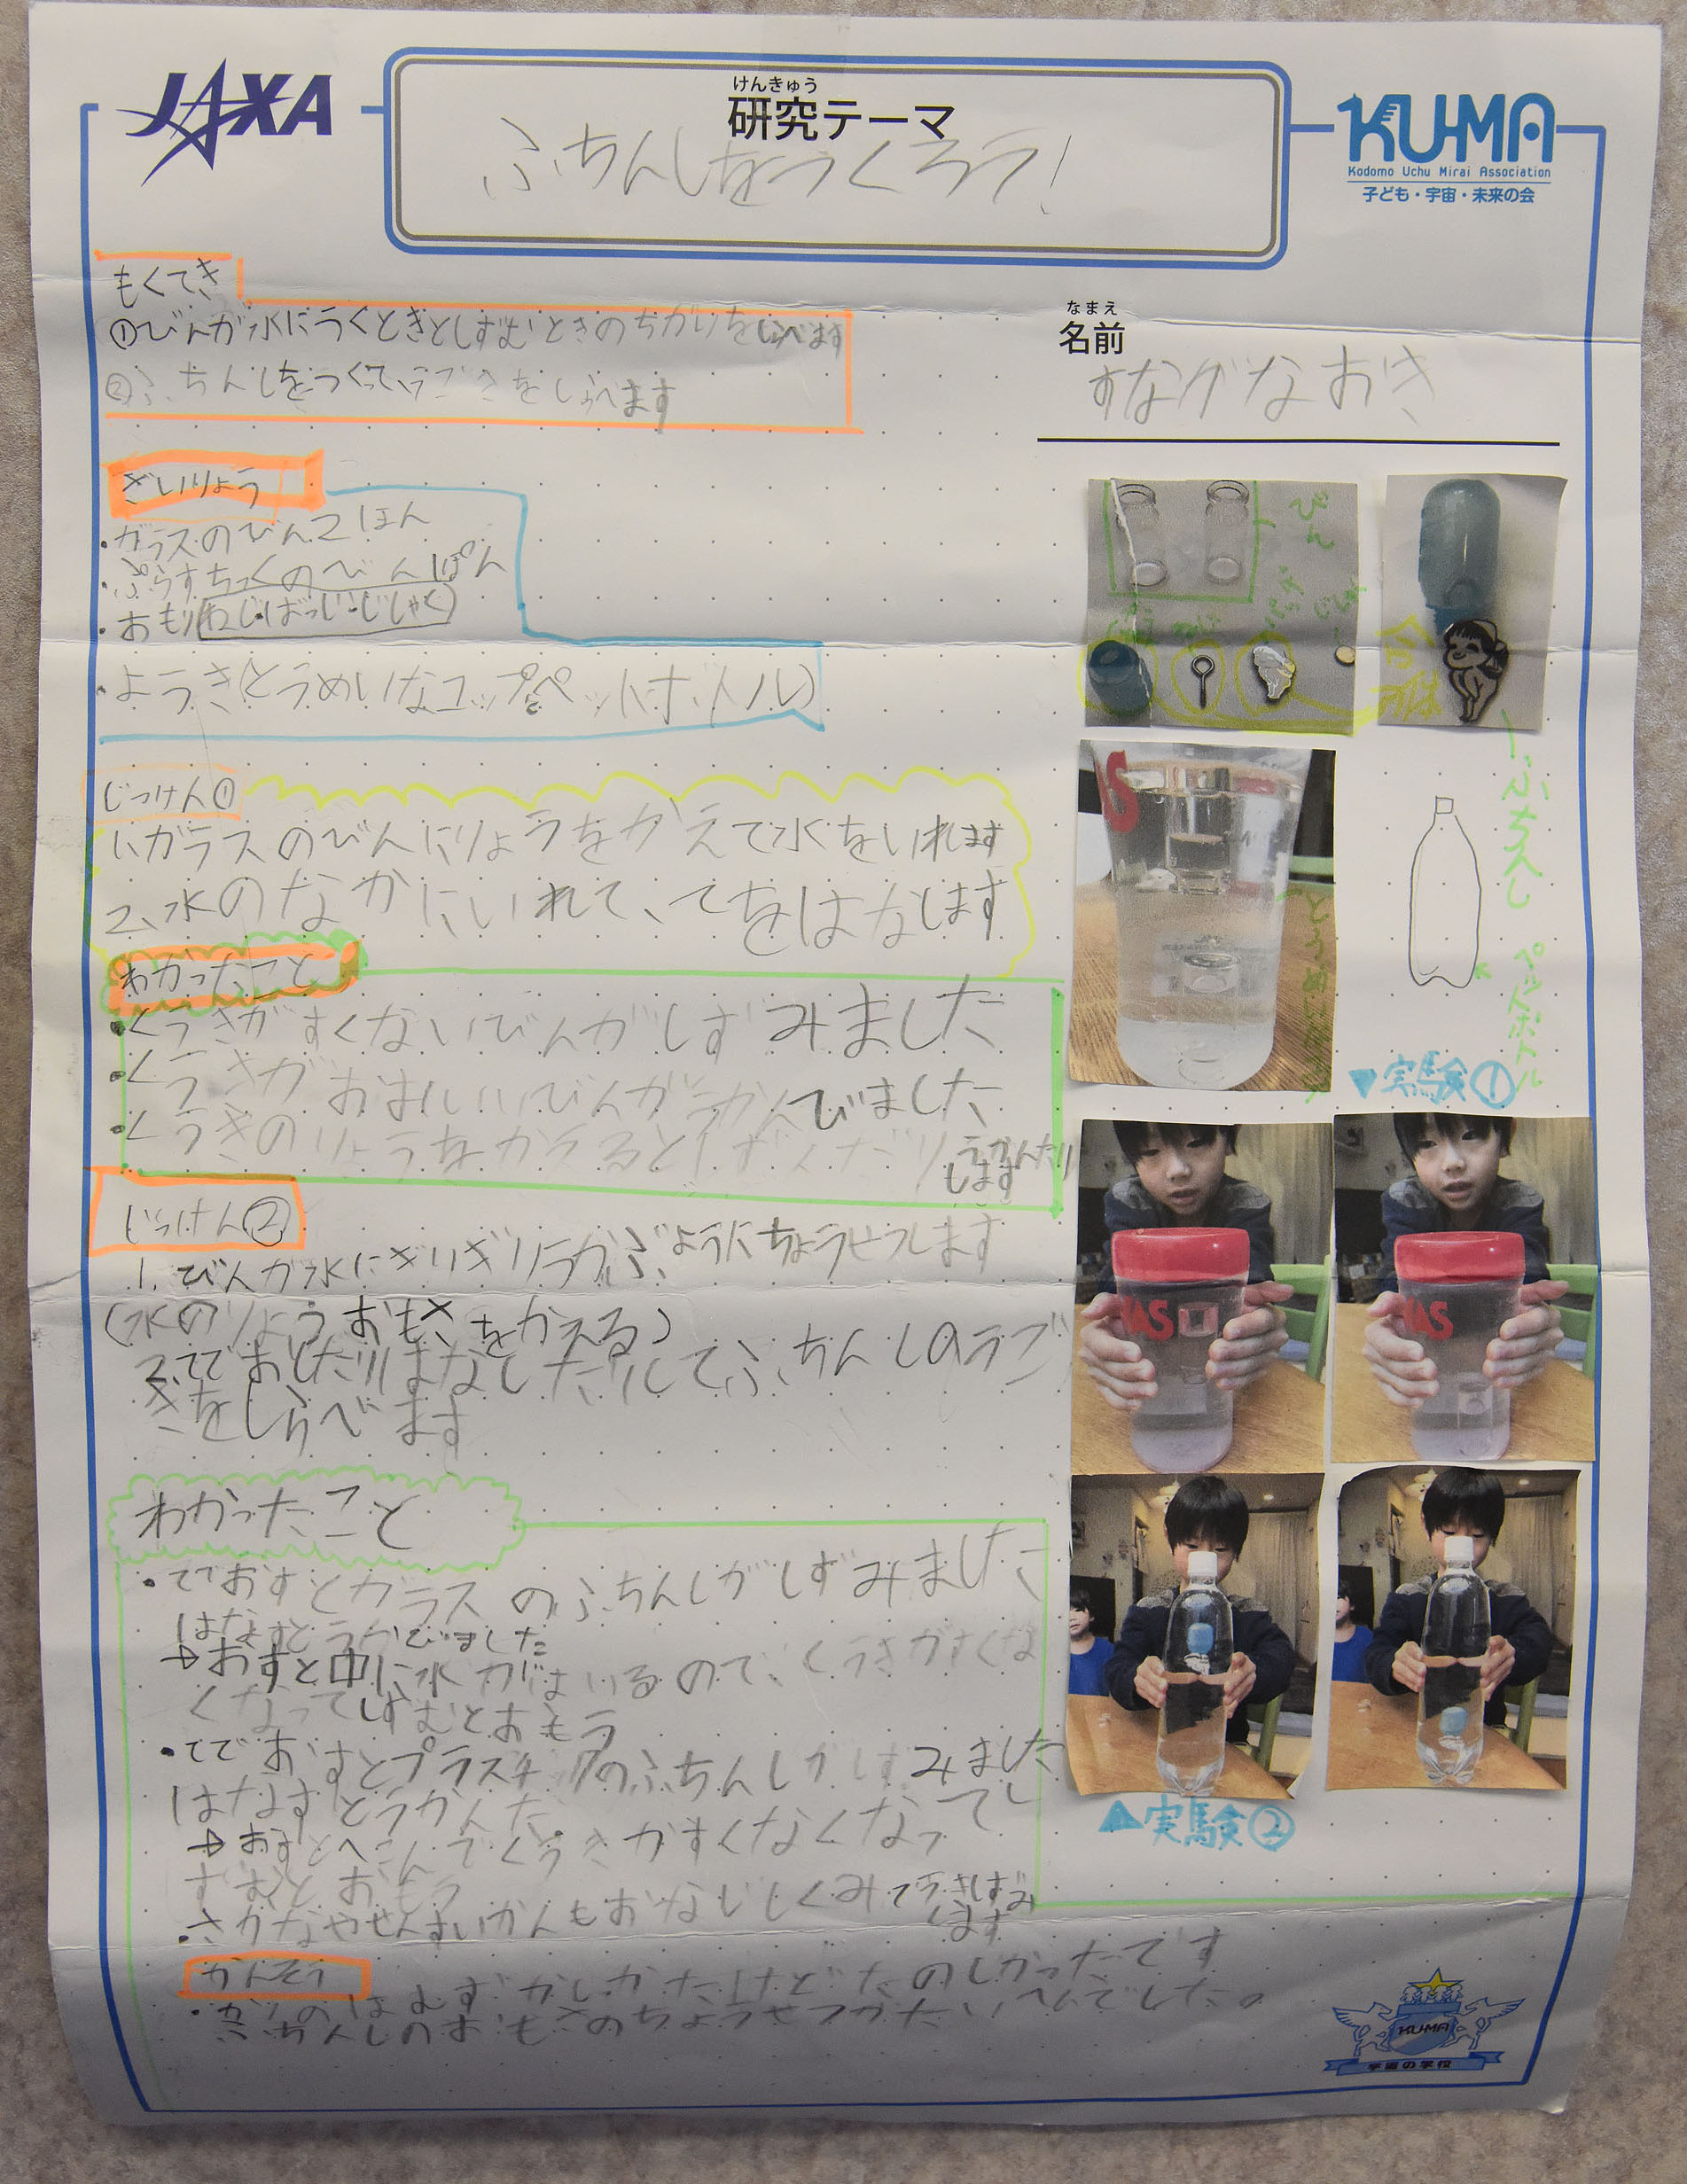 JAXA
けんきゅう
研究テーマ
ふちんしをつくろう!
KUMA
Kodomo Uchu Mirai Association
子ども・宇宙・未来の会
もくてき
①びんが水にうくときとしずむときのちがいをしらべます
②ふちんしをつくってうごきをしらべます
なまえ
名前
すながなおき
ざいりょう
・ガラスのびん2ほん
・ぷらすちっくのびん1ぽん
・おもり(ねじ・ばっじ・じしゃく)
・ようき(とうめいなコップとペットボトル)
びん
ふちんし
ペットボトル
じっけん①
1、ガラスのびんにりょうをかえて水をいれます
2、水のなかにいれて、てをはなします
わかったこと
・くうきがすくないびんがしずみました
・くうきがおおいびんがうかびました
・くうきのりょうをかえるとしずんだりうかんだり
します
▼実験①
じっけん②
1、びんが水にぎりぎりうかぶようにちょうせつします
(水のりょうおもさをかえる)
2、てでおしたりはなしたりしてふちんしのうご
きをしらべます
わかったこと
・てでおすとガラスのふちんしがしずみました
はなすとうかびました
→おすと中に水がはいるので、くうきがすくな
くなってしずむとおもう
・てでおすとプラスチックのふちんしがしずみました
はなすとうかんだ
→おすとへこんでくうきがすくなくなってし
ずむとおもう
・さかなやせんすいかんもおなじしくみで
▲実験②
かんそう
ふちんしのおもさのちょうせつがたいへんでした。
KUMA
宇宙の学校